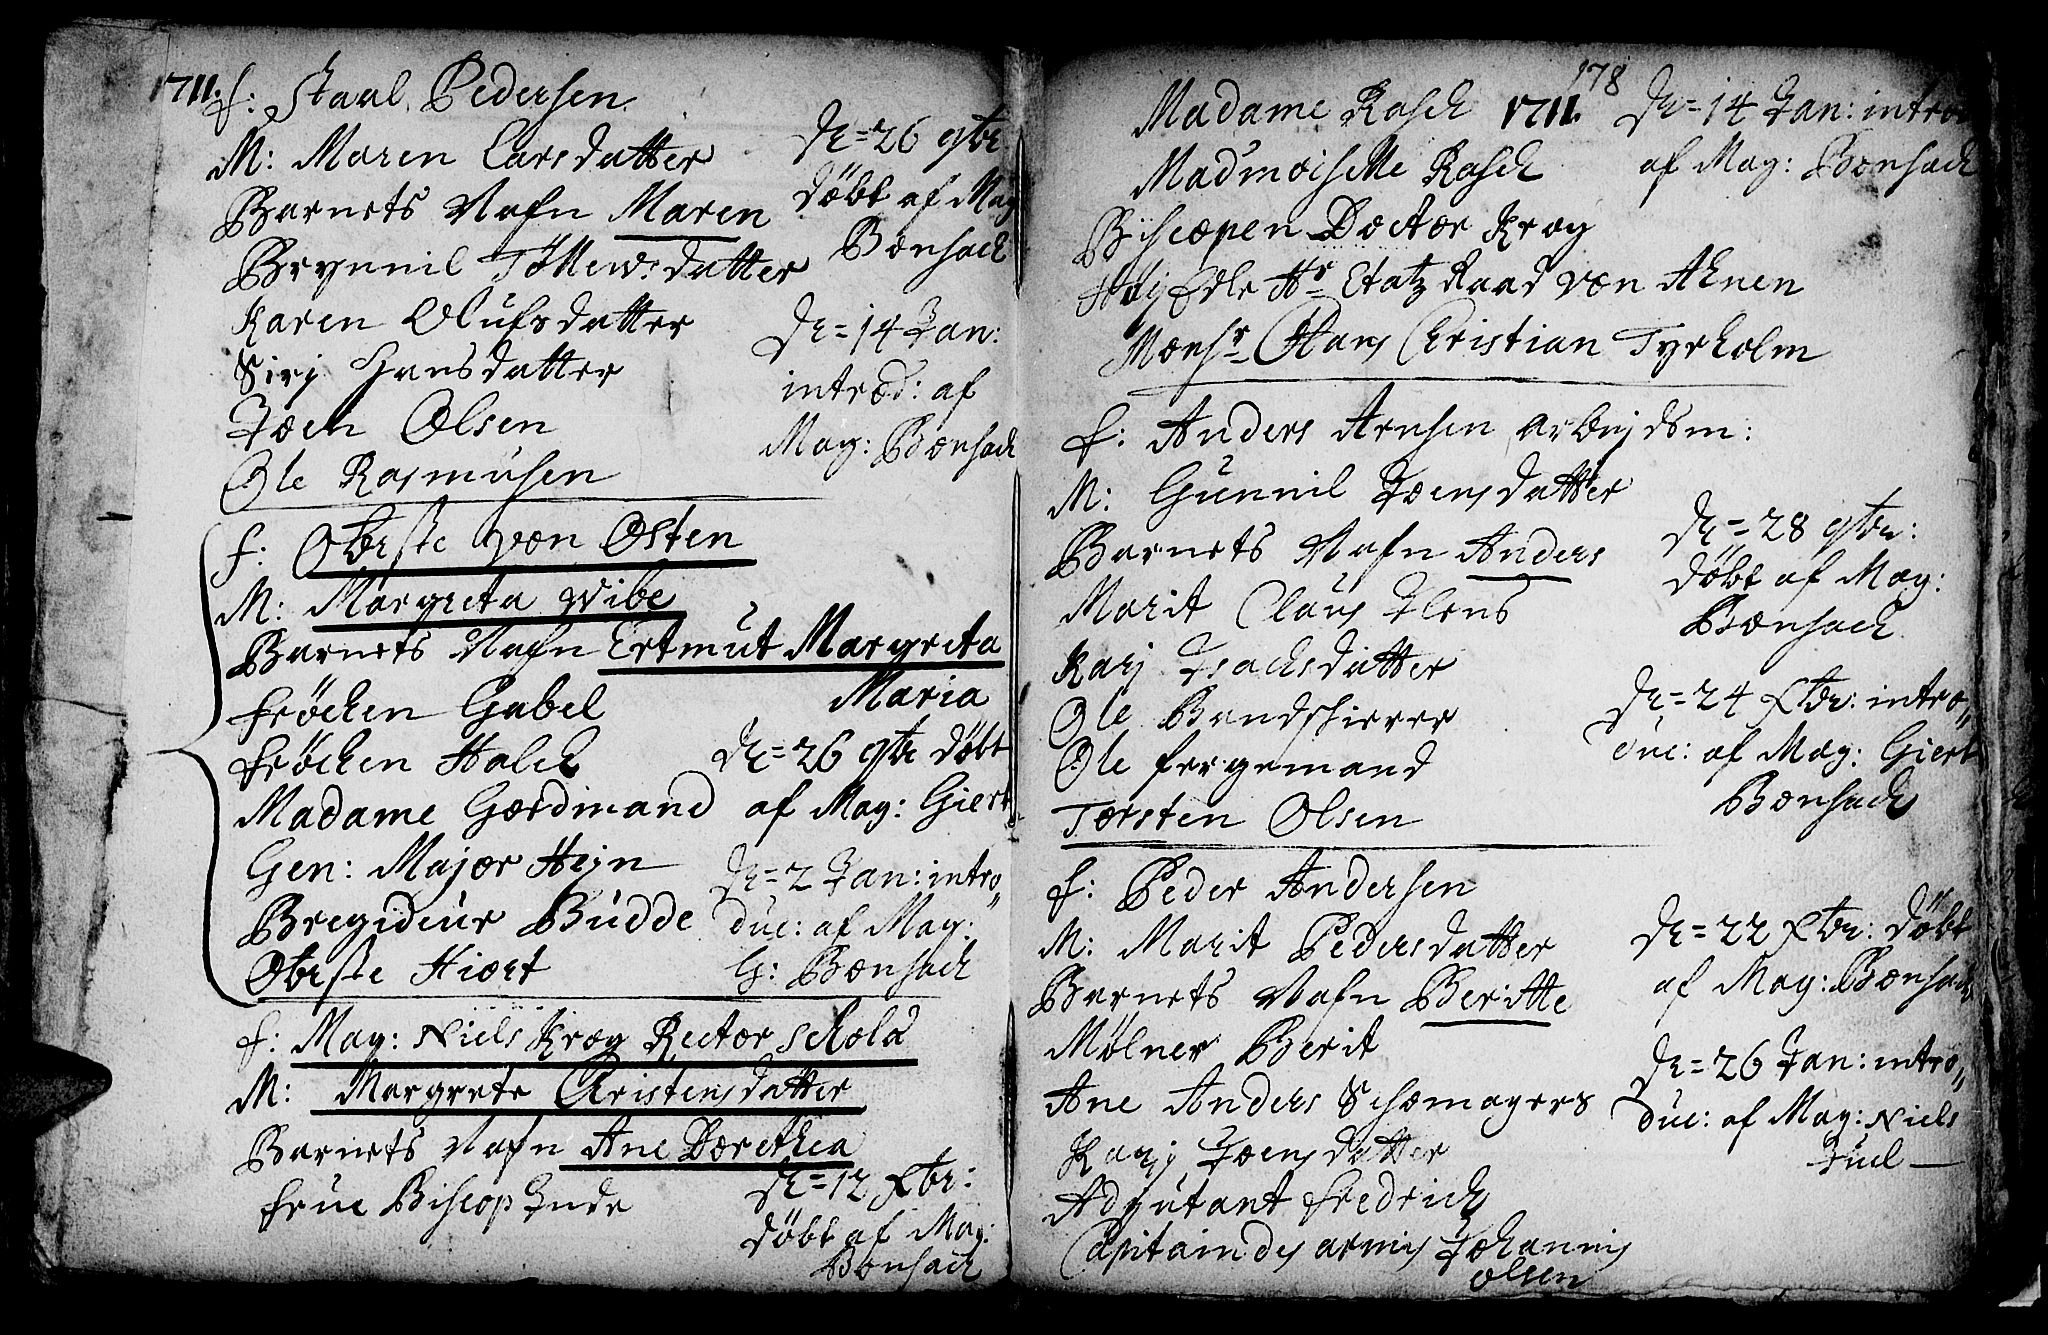 1711.
f: Staal Pedersen
M: Maren Larsdatter
Barnets Nafn Maren
Brynnil Tøllewsdatter
Karen Olufsdatter
Siri Hansdatter
Joen Olsen
Ole Rasmusen
d. = 26 9br
døbt af Mag
Bonsach
d. = 14 Jan:
introd: af
Mag: Bonsach
f: Obriste von Osten
M: Margreta Vibe
Barnets Nafn Ertmut Margreta
Maria
frøchen Gabel
frøchen Halck
Madame Gordimand
Gen: Major Hejn
Bregideur Budde
Obriste Hiort
d. = 26 9br døbt
af Mag: Giert
d. = 2 Jan: intro„
duc: af Mag:
G: Bonsach
f: Mag: Niels Krog Rector schola
M: Margrete Christensdatter
Barnets Nafn Ane Dorethea
frue Biscop
d. = 12 Xbr:
døbt af Mag:
Bonsach
178
1711.
Madame Rasch
Madmoiselle Rasch
Biscopen Doctor Krog
Høj Edle Hr Etatz Raad von Ahnen
Monsr Hans Christian Tyrholm
d. = 14 Jan: introd
af Mag: Bonsach
f: Anders Arnsen arbejdsm:
M: Gunnil Joensdatter
Barnets Nafn Anders
Marit Claus
Kari Isachsdatter
Ole Bendschierer
Ole fergemand
Torsten Olsen
d. = 28 9br:
døbt af Mag:
Bonsach
d. = 24 Xbr: intro„
duc: af Mag: Giert
Bonsach
f: Peder Andersen
M: Marit Pedersdatter
Barnets Nafn Beritte
Mølner Berit
Ane Anders Schomagers
Kari Joensdatter
Adjutant fredrich
Capitain des armis Johannis
Olsen
d. = 22 Xbr: døbt
af Mag: Bonsach
d. = 26 Jan: intro„
duc: af Mag: Niels
Juel —